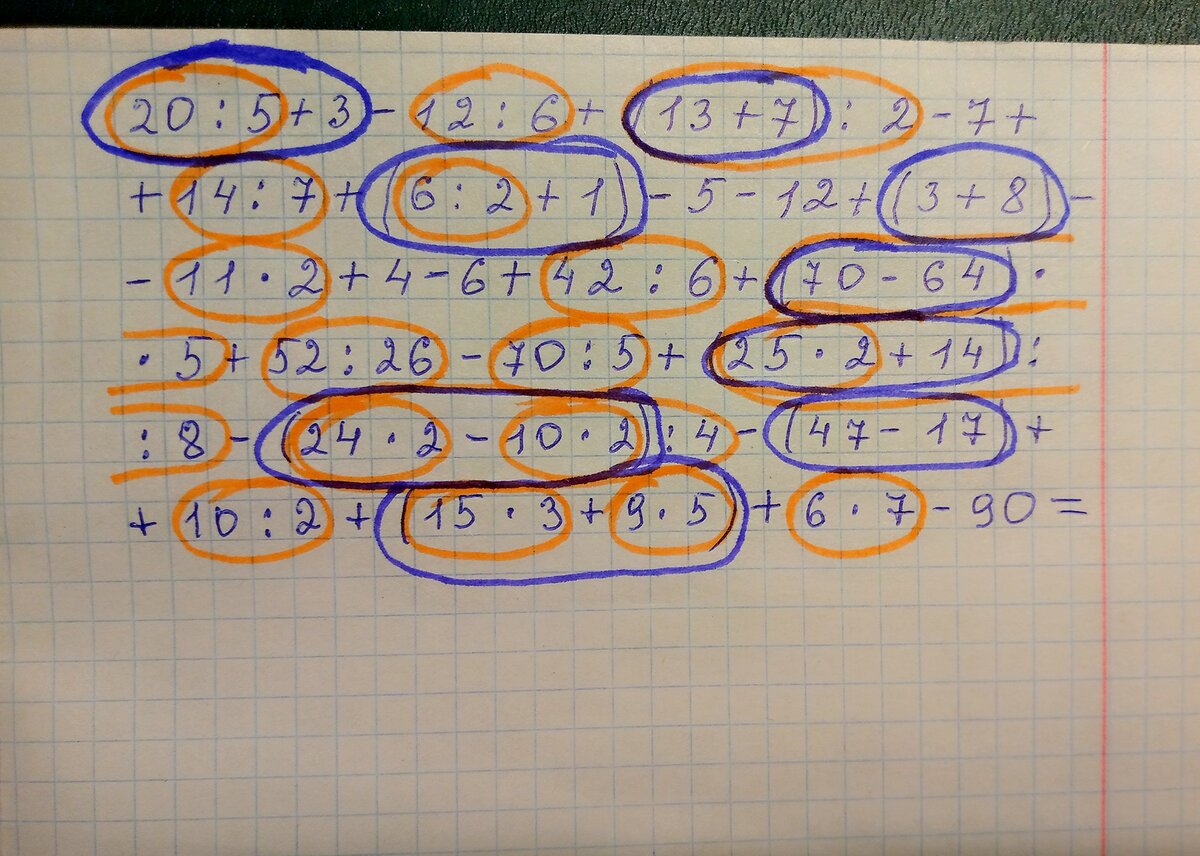 20 : 5 + 3 - 12 : 6 + (13 + 7) : 2 - 7 +
+ 14 : 7 + (6 : 2 + 1) - 5 - 12 + (3 + 8) -
- 11 · 2 + 4 - 6 + 42 : 6 + (70 - 64) ·
· 5 + 52 : 26 - 70 : 5 + (25 · 2 + 14) :
: 8 - (24 · 2 - 10 · 2) : 4 - (47 - 17) +
+ 10 : 2 + (15 · 3 + 9 · 5) + 6 · 7 - 90 =